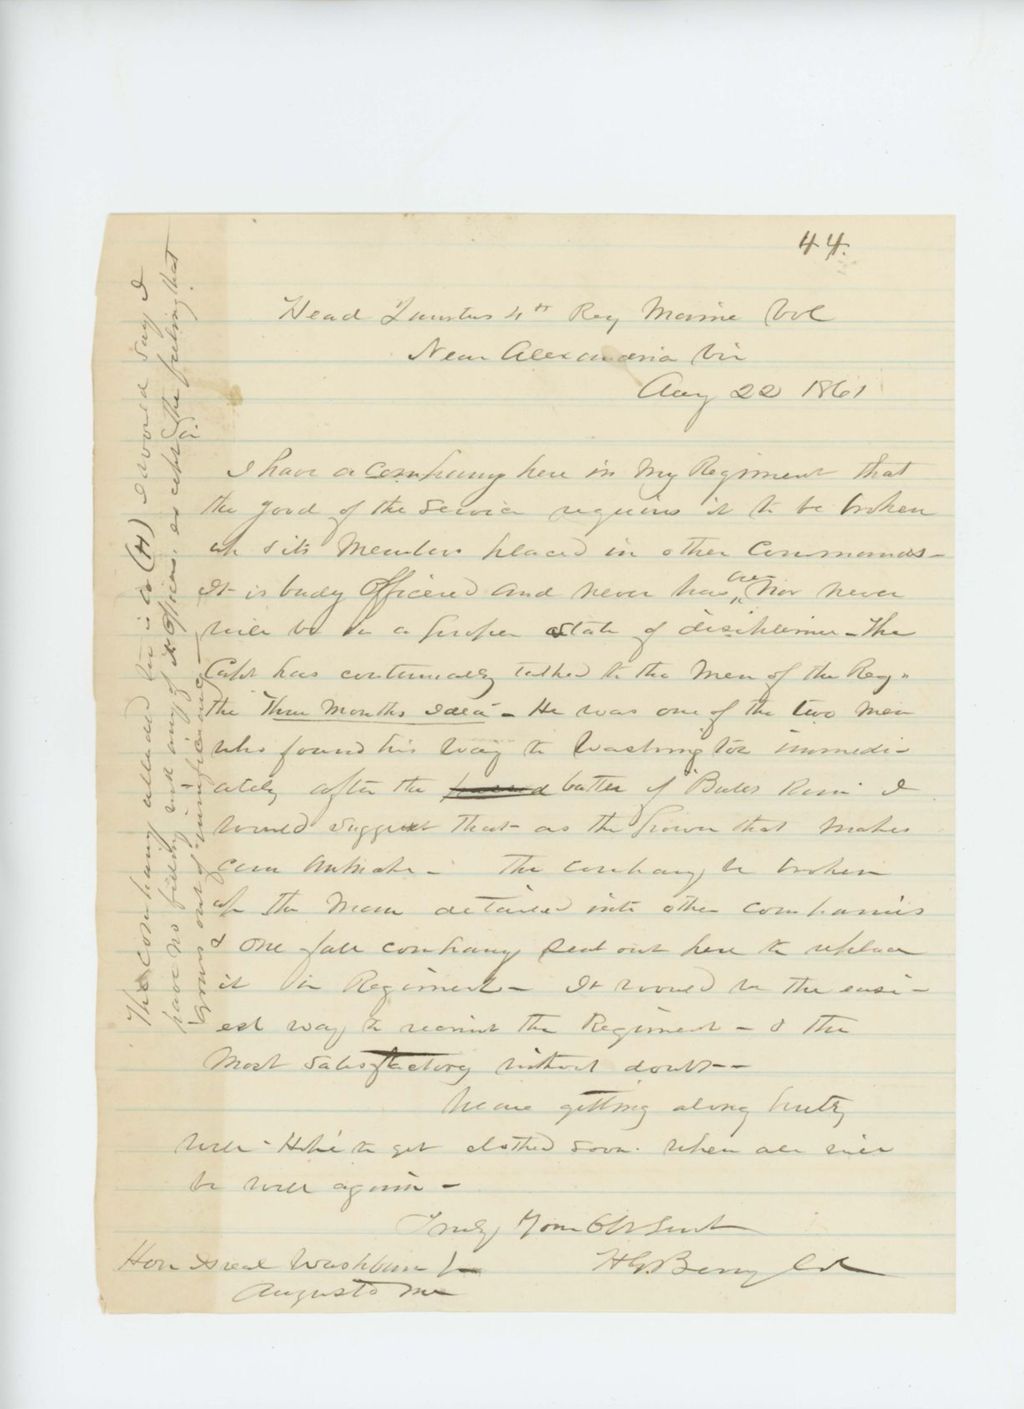 44.
Head Quarters 4th Reg Maine Vol
Near Alexandria Vir
Aug 22 1861
Sir
I have a company here in my Regiment that
the good of the service requires it to be broken
up & its Members placed in other Commands -
It is badly Officered and never has been nor never
will be in a proper state of discipline - The
Capt has continually talked to the Men of the Reg.
the Three Months Idea - He was one of the two men
who found his way to Washington immedi-
ately after the battle of Bulls Run I
would suggest that as the power that makes
can unmake - The company be broken
up the Men detailed into other companies
& one full company sent out here to replace
it in Regiment - It would be the easi-
est way to recruit the Regiment - & the
Most satisfactory without doubt --
We are getting along pretty
well - Hope to get clothed soon. when all will
be well again -
Truly Your Obt Servt
H G. Berry Col
Hon Israel Washburn Jr
Augusta Me
The company alluded to is Co (H) I would say I
have no feeling with any of its Officers, except the feeling that
grows out of inefficiency -